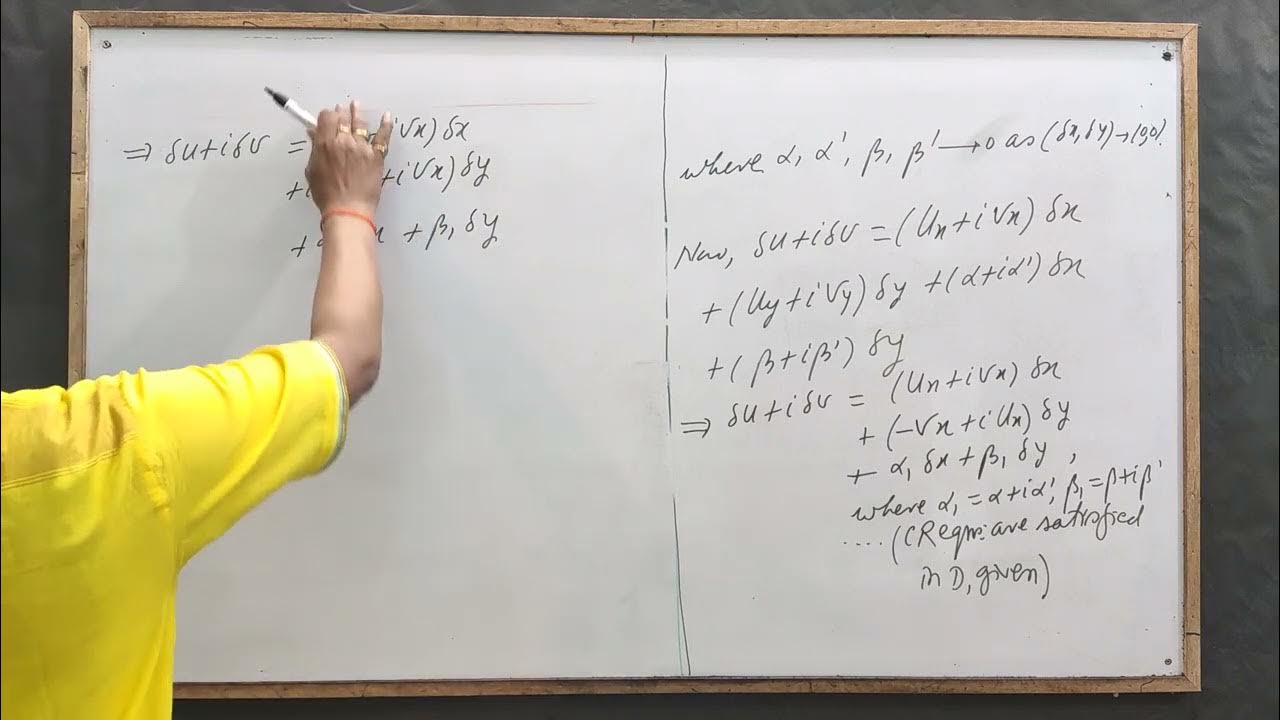 ⇒ δu+iδv = iVx) δx
+i +iVx) δy
+ + β₁ δy
where α, α', β, β' → 0 as (δx, δy) → (0,0).
Now, δu+iδv = (Ux+iVx) δx
+ (Uy+iVy) δy + (α+iα') δx
+ (β+iβ') δy
⇒ δu+iδv = (Ux+iVx) δx
+ (-Vx+iUx) δy
+ α₁ δx + β₁ δy ,
where α₁ = α+iα', β₁ = β+iβ'
.... (CR eqns. are satisfied
in D, given)